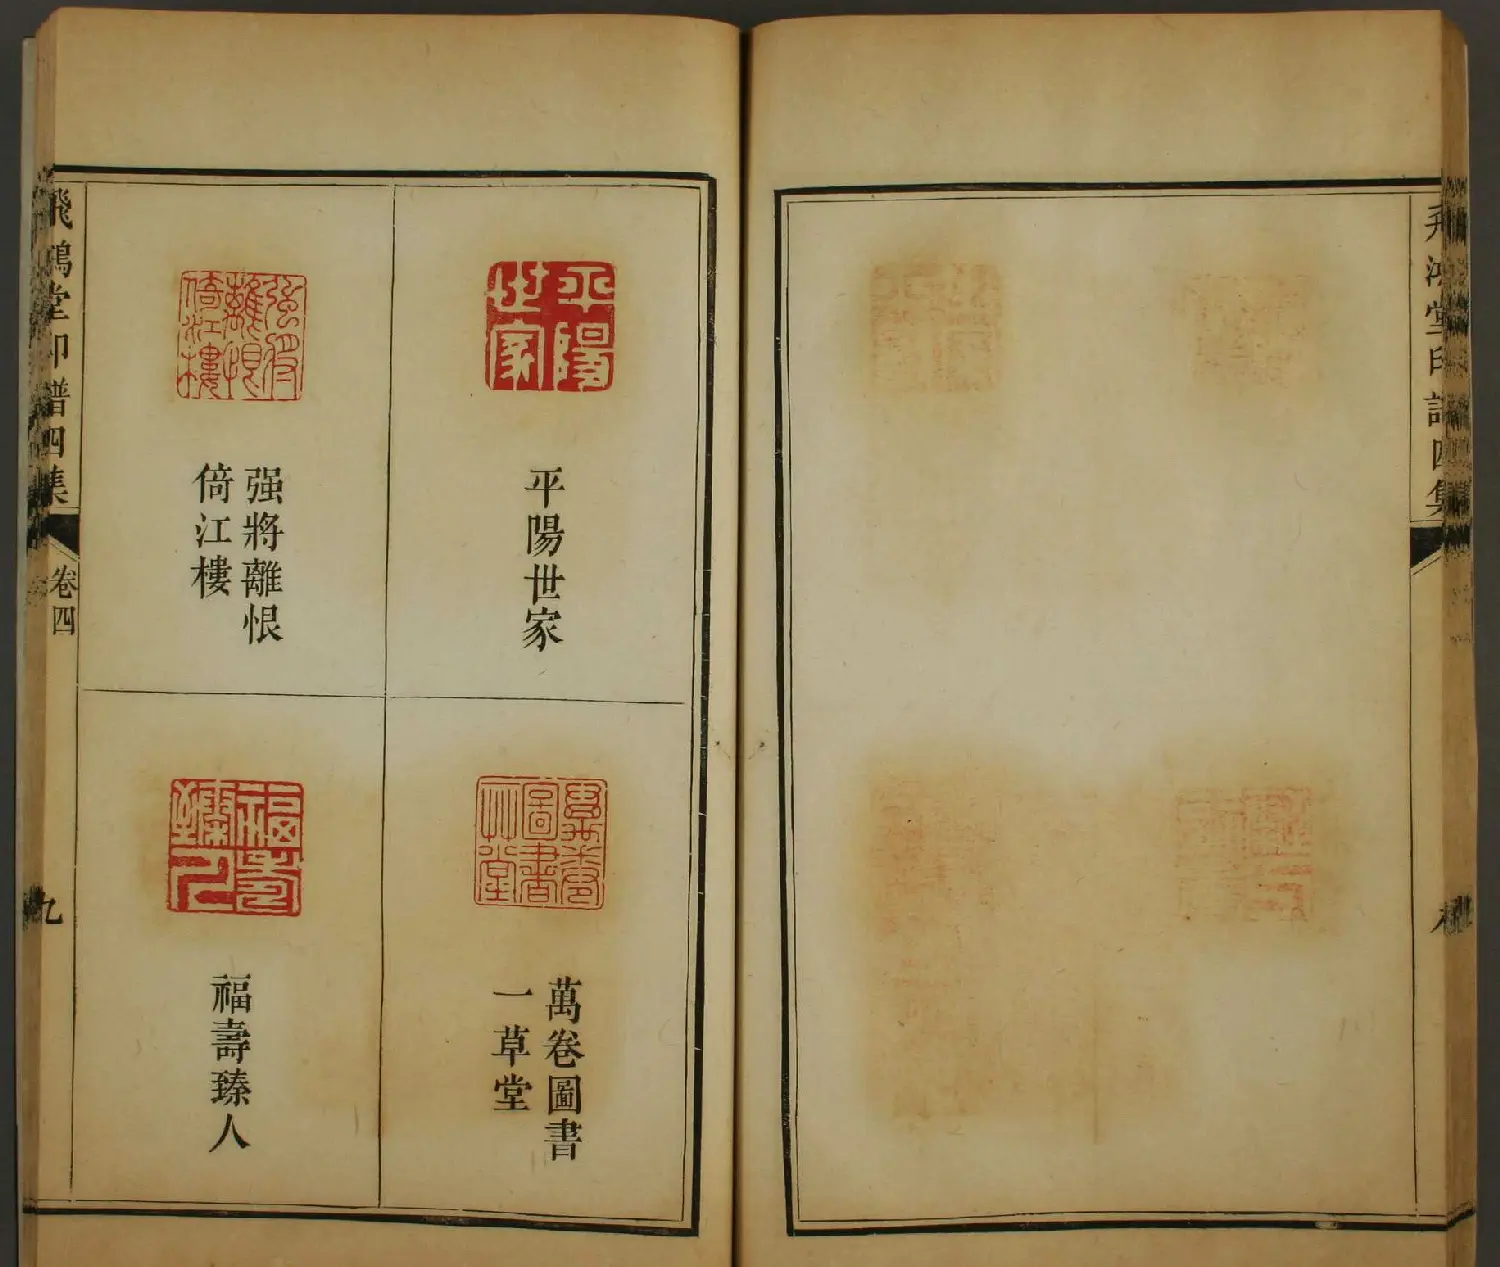 飛鴻堂印譜四集
平陽世家
平陽世家
强將離恨
倚江樓
强將離恨
倚江樓
萬卷圖書
一草堂
萬卷圖書
一草堂
福壽臻人
福壽臻人
飛鴻堂印譜四集
卷四
九